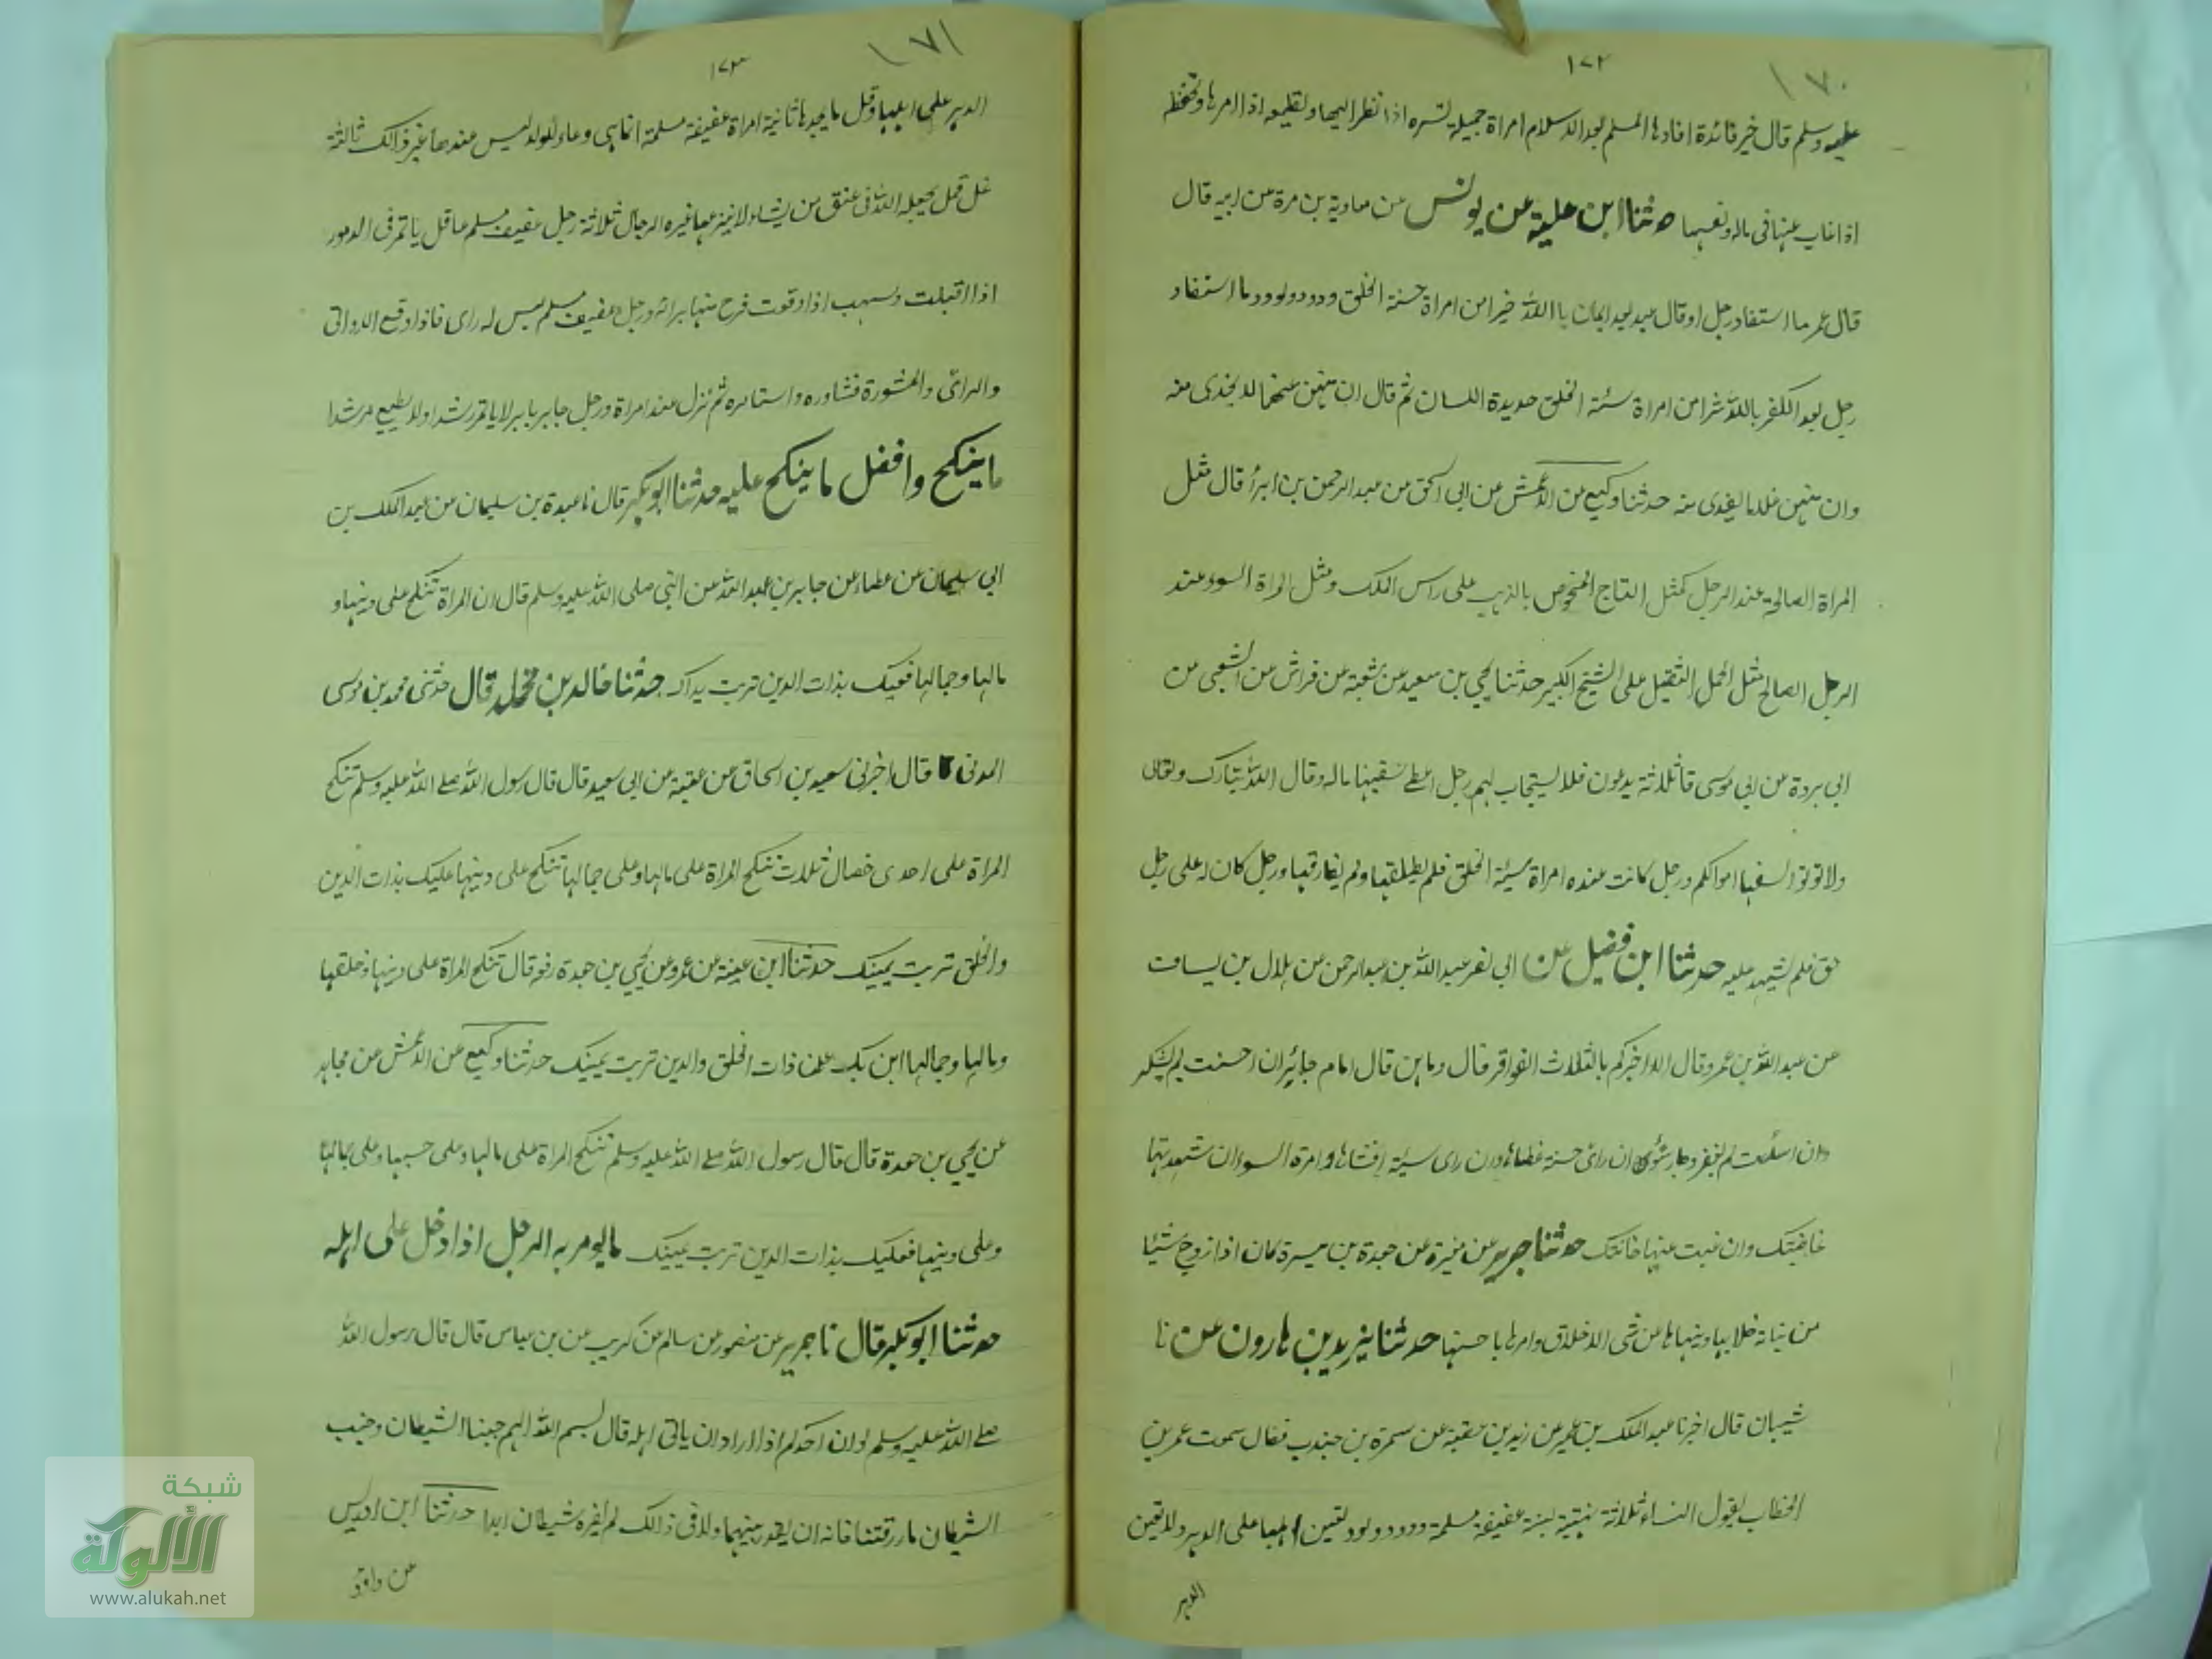 ١٧٠
١٧٢
عليه وسلم قال خير فائدة افادها المسلم بعد الاسلام امراة جميلة تسره اذا نظر اليها وتطيعه اذا امرها وتحفظه
اذا غاب عنها فى ماله ونفسها حدثنا ابن علية عن يونس عن معاوية بن مرة عن ابيه قال
قال عمر ما استفاد رجل او قال عبد بعد ايمان باالله خيرا من امراة حسنة الخلق ودود ولود وما استفاد
رجل بعد الكفر بالله شرا من امراة سئية الخلق حديدة اللسان ثم قال ان منهن غنما لا يحذى منه
وان منهن غلا ما يفدى منه حدثنا وكيع عن الاعمش عن ابى اسحق عن عبد الرحمن بن ابزا قال مثل
المراة الصالحة عند الرجل كمثل التاج المتخوص بالذهب على راس الملك ومثل المراة السوء عند
الرجل الصالح مثل الحمل الثقيل على الشيخ الكبير حدثنا يحيى بن سعيد عن شعبة عن فراش عن الشعبى عن
ابى بردة عن ابى موسى قا ثلاثة يدعون فلا يستجاب لهم رجل اعطى سفيها ماله وقال الله تبارك وتعالى
ولا توتوا السفها اموالكم ورجل كانت عنده امراة سيئة الخلق فلم يطلقها ولم يفارقها ورجل كان له على رجل
حق فلم يشهد عليه حدثنا ابن فضيل عن ابى نصر عبد الله بن عبد الرحمن عن بلال بن يساف
عن عبد الله بن عمر وقال الا اخبركم بالثلاث الفواقر قال وما هن قال امام جائر ان احسنت لم يشكر
وان اسئت لم يغفر وجار سوء ان راى حسنة غطاها وان راى سيئة افشاها وامرة السوء ان شهدتها
غاظتك وان غبت عنها خانتك حدثنا جرير عن مغيرة عن حمدة بن ميسرة كان اذا زوج شيئا
من بناته خلا بها وينهاها عن سئ الاخلاق وامرها باحسنها حدثنا يزيد بن هارون عن نا
شيبان قال اخبرنا عبد الملك بن عمير عن زيد بن عقبة عن سمرة بن جندب فقال سمعت عمر بن
الخطاب يقول النساء ثلاثة لينة عفيفة مسلمة ودود ولود تعين اهلها على الدهر ولا تعين
الدهر
١٧١
١٧٣
الدهر على اهلها وقل ما يجدها ثانية امراة عفيفة مسلمة انما هى وعاء للولد ليس عندها غير ذالك ثالثة
غل قمل يجعله الله فى عنق من يشاء ولا ينزعها غيره الرجال ثلاثة رجل عفيف مسلم عاقل ياتمر فى الامور
اذا اقبلت وسهب اذا وقعت فرج منها برائه ورجل عفيف مسلم ليس له راى فاذا وقع الامر اتى
والرائ والمشورة فشاوره واستامره ثم نزل عند امراة ورجل جابر باير لا ياتمر رشدا ولا يطيع مرشدا
ما ينكح وافضل ما ينكح عليه حدثنا ابو بكر قال نا عبدة بن سليمان عن عبد الملك بن
ابى سليمان عن عطاء عن جابر بن عبد الله عن النبى صلى الله عليه وسلم قال ان المراة تنكح على دينها و
مالها وجمالها فعليك بذات الدين تربت يداك حدثنا خالد بن مخلد قال حدثنى محمد بن موسى
المدنى قال اخبرنى سعيد بن اسحاق عن عقبة عن ابى سعيد قال قال رسول الله صلى الله عليه وسلم تنكح
المراة على احدى خصال ثلاث تنكح المراة على مالها وعلى جمالها تنكح على دينها عليك بذات الدين
والخلق تربت يمينك حدثنا ابن عيينة عن عمرو عن يحيى بن جعدة رفعه قال تنكح المراة على دينها وخلقها
ومالها وجمالها اين بك عن ذات الخلق والدين تربت يمينك حدثنا وكيع عن الاعمش عن مجاهد
عن يحيى بن جعدة قال قال رسول الله صلى الله عليه وسلم تنكح المراة على مالها وعلى حسبها وعلى جمالها
وعلى دينها فعليك بذات الدين تربت يمينك ما يومر به الرجل اذا دخل على اهله
حدثنا ابو بكر قال نا جرير عن منصور عن سالم عن كريب عن بن عباس قال قال رسول الله
صلى الله عليه وسلم لو ان احدكم اذا اراد ان ياتى اهله قال بسم الله اللهم جنبنا الشيطان وجنب
الشيطان ما رزقتنا فانه ان يقدر بينهما ولد فى ذالك لم يضره شيطان ابدا حدثنا ابن ادريس
عن داود
شبكة
الألوكة
www.alukah.net